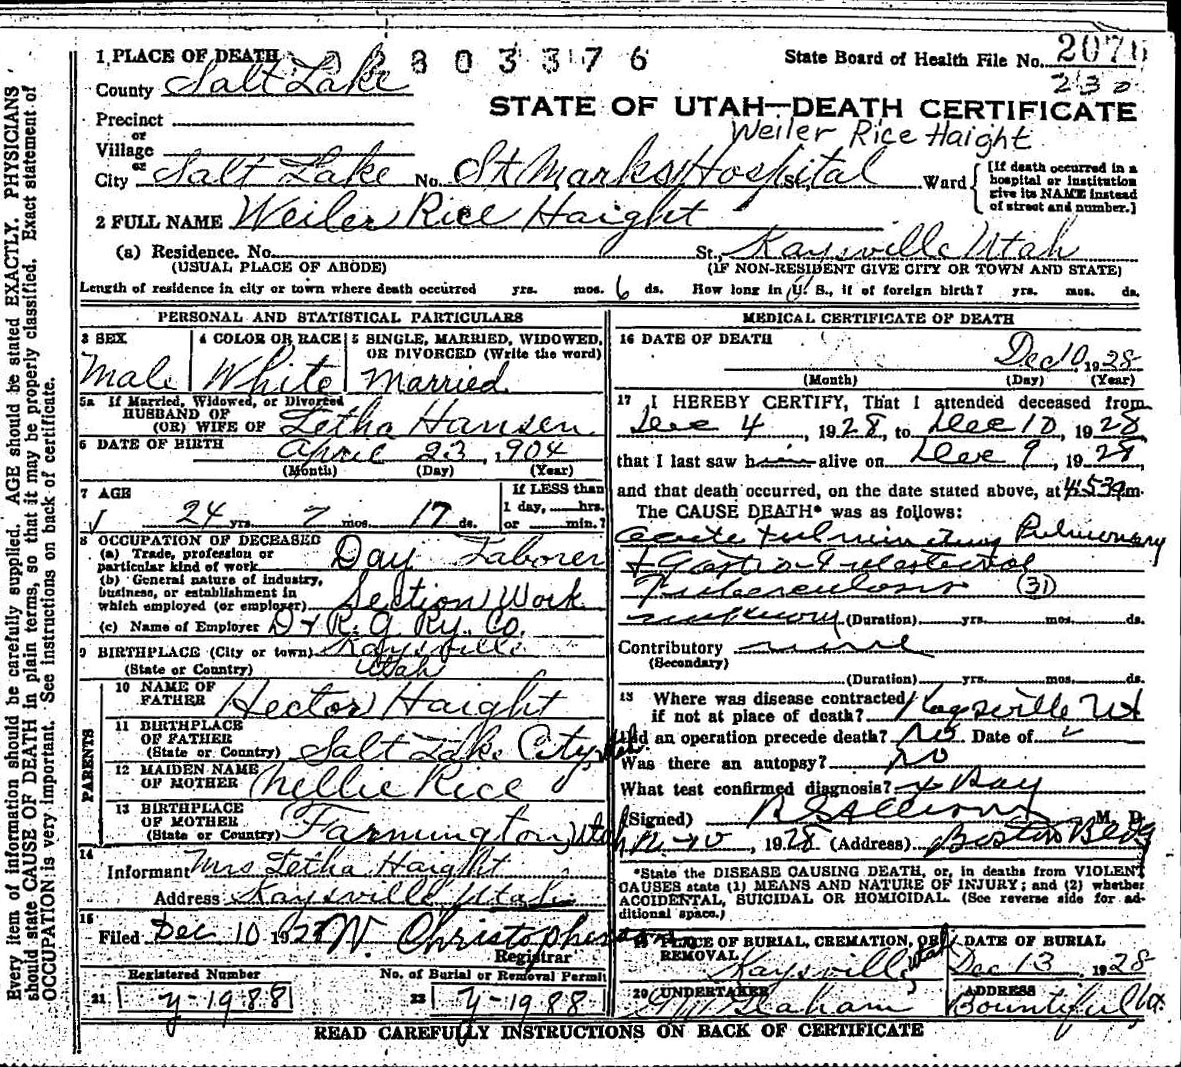 1 PLACE OF DEATH
2 8 0 3 3 7 6
State Board of Health File No.
230
County Salt Lake
STATE OF UTAH—DEATH CERTIFICATE
Precinct
Weiler Rice Haight
or
Village
or
City Salt Lake No. St Marks Hospital St., Ward
[If death occurred in a
hospital or institution
give its NAME instead
of street and number.]
2 FULL NAME Weiler Rice Haight
(a) Residence. No. St., Kaysville Utah
(USUAL PLACE OF ABODE) (IF NON-RESIDENT GIVE CITY OR TOWN AND STATE)
Length of residence in city or town where death occurred yrs. mos. 6 ds. How long in U. S., if of foreign birth? yrs. mos. ds.
PERSONAL AND STATISTICAL PARTICULARS
3 SEX
Male
4 COLOR OR RACE
White
5 SINGLE, MARRIED, WIDOWED,
OR DIVORCED (Write the word)
Married
5a If Married, Widowed, or Divorced
HUSBAND OF
(OR) WIFE OF Letha Hansen
6 DATE OF BIRTH April 23, 1904
(Month) (Day) (Year)
7 AGE
24 yrs. 7 mos. 17 ds.
If LESS than
1 day, hrs.
or min.?
8 OCCUPATION OF DECEASED
(a) Trade, profession or
particular kind of work Day Laborer
(b) General nature of industry,
business, or establishment in
which employed (or employer) Section Work
(c) Name of Employer D & R. G Ry. Co.
9 BIRTHPLACE (City or town) Kaysville
(State or Country) Utah
PARENTS
10 NAME OF
FATHER Hector Haight
11 BIRTHPLACE
OF FATHER
(State or Country) Salt Lake City, Utah
12 MAIDEN NAME
OF MOTHER Nellie Rice
13 BIRTHPLACE
OF MOTHER
(State or Country) Farmington, Utah
14
Informant Mrs Letha Haight
Address Kaysville Utah
15
Filed Dec 10 192 W Christopherson
Registrar
Registered Number
21 y-1988
No. of Burial or Removal Permit
22 y-1988
MEDICAL CERTIFICATE OF DEATH
16 DATE OF DEATH
Dec 10, 1928
(Month) (Day) (Year)
17 I HEREBY CERTIFY, That I attended deceased from
Dec 4, 1928, to Dec 10, 1928
that I last saw him alive on Dec 9, 1928,
and that death occurred, on the date stated above, at m.
The CAUSE DEATH* was as follows:
Acute Fulminating Pulmonary
& Gastro-Intestinal
Tuberculosis (31)
unknown (Duration) yrs. mos. ds.
Contributory none
(Secondary)
(Duration) yrs. mos. ds.
18 Where was disease contracted
if not at place of death? Kaysville Ut
Did an operation precede death? No Date of
Was there an autopsy? No
What test confirmed diagnosis? X Ray
(Signed) R S Allison M. D.
12-10, 1928 (Address) Boston Bldg
*State the DISEASE CAUSING DEATH, or, in deaths from VIOLENT
CAUSES state (1) MEANS AND NATURE OF INJURY; and (2) whether
ACCIDENTAL, SUICIDAL OR HOMICIDAL. (See reverse side for ad-
ditional space.)
19 PLACE OF BURIAL, CREMATION, OR
REMOVAL
Kaysville, Utah
DATE OF BURIAL
Dec 13 1928
20 UNDERTAKER
Graham
ADDRESS
Bountiful Utah
READ CAREFULLY INSTRUCTIONS ON BACK OF CERTIFICATE
Every item of information should be carefully supplied. AGE should be stated EXACTLY. PHYSICIANS
should state CAUSE OF DEATH in plain terms, so that it may be properly classified. Exact statement of
OCCUPATION is very important. See instructions on back of certificate.